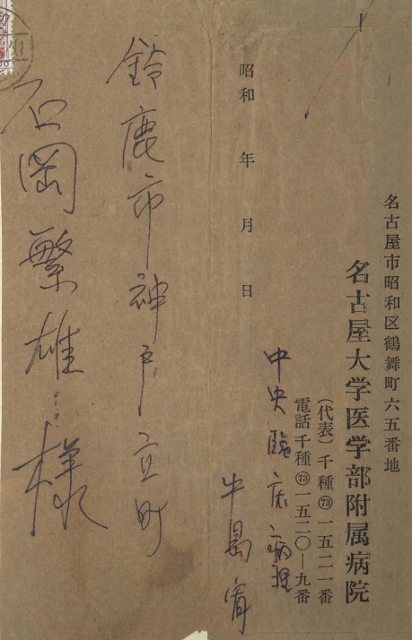 名古屋市昭和区鶴舞町六五番地
名古屋大学医学部附属病院
(代表)千種㉓一五二一番
電話千種㉓一五二〇―九番
中央臨床病理
牛島宥
昭和 年 月 日
鈴鹿市神戸立町
石岡繁雄様